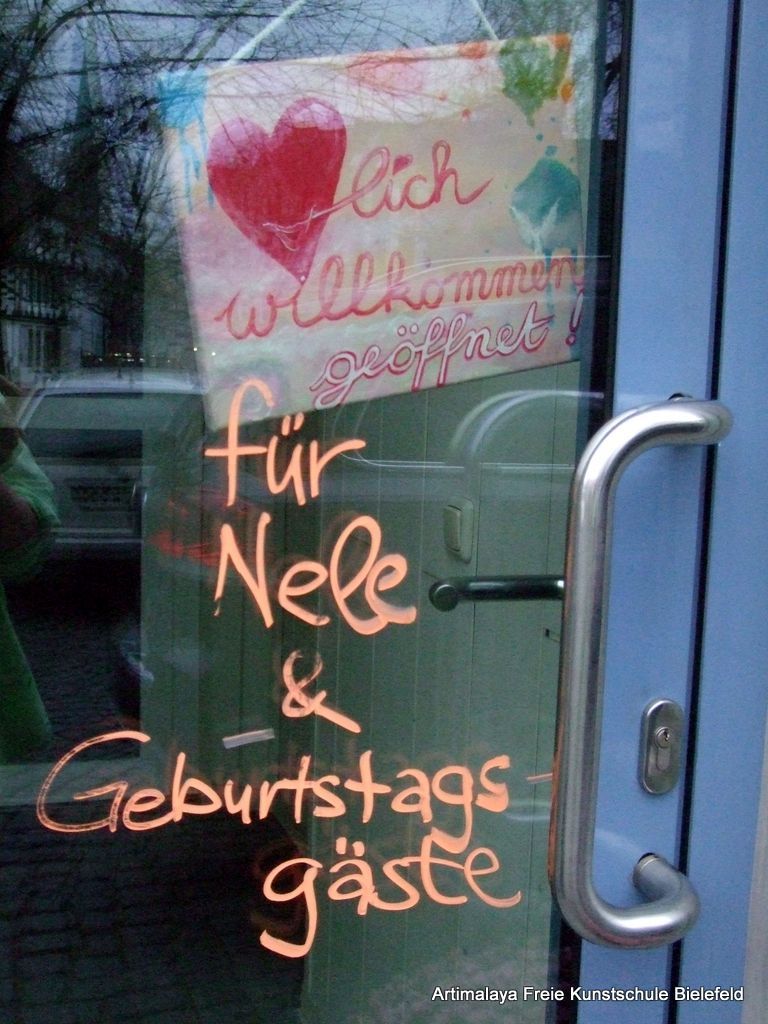 lich
willkommen
geöffnet!
für
Nele
&
Geburtstags-
gäste
Artimalaya Freie Kunstschule Bielefeld